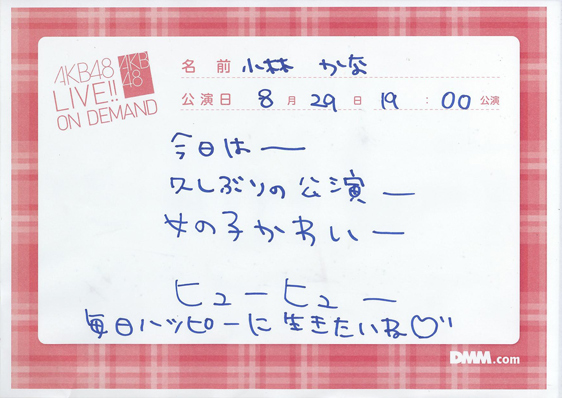 AKB48
LIVE!!
ON DEMAND
AKB
48
名前 小林 かな
公演日 8月29日 19:00公演
今日はー
久しぶりの公演ー
女の子かわいー
ヒューヒュー
毎日ハッピーに生きたいね♡
DMM.com